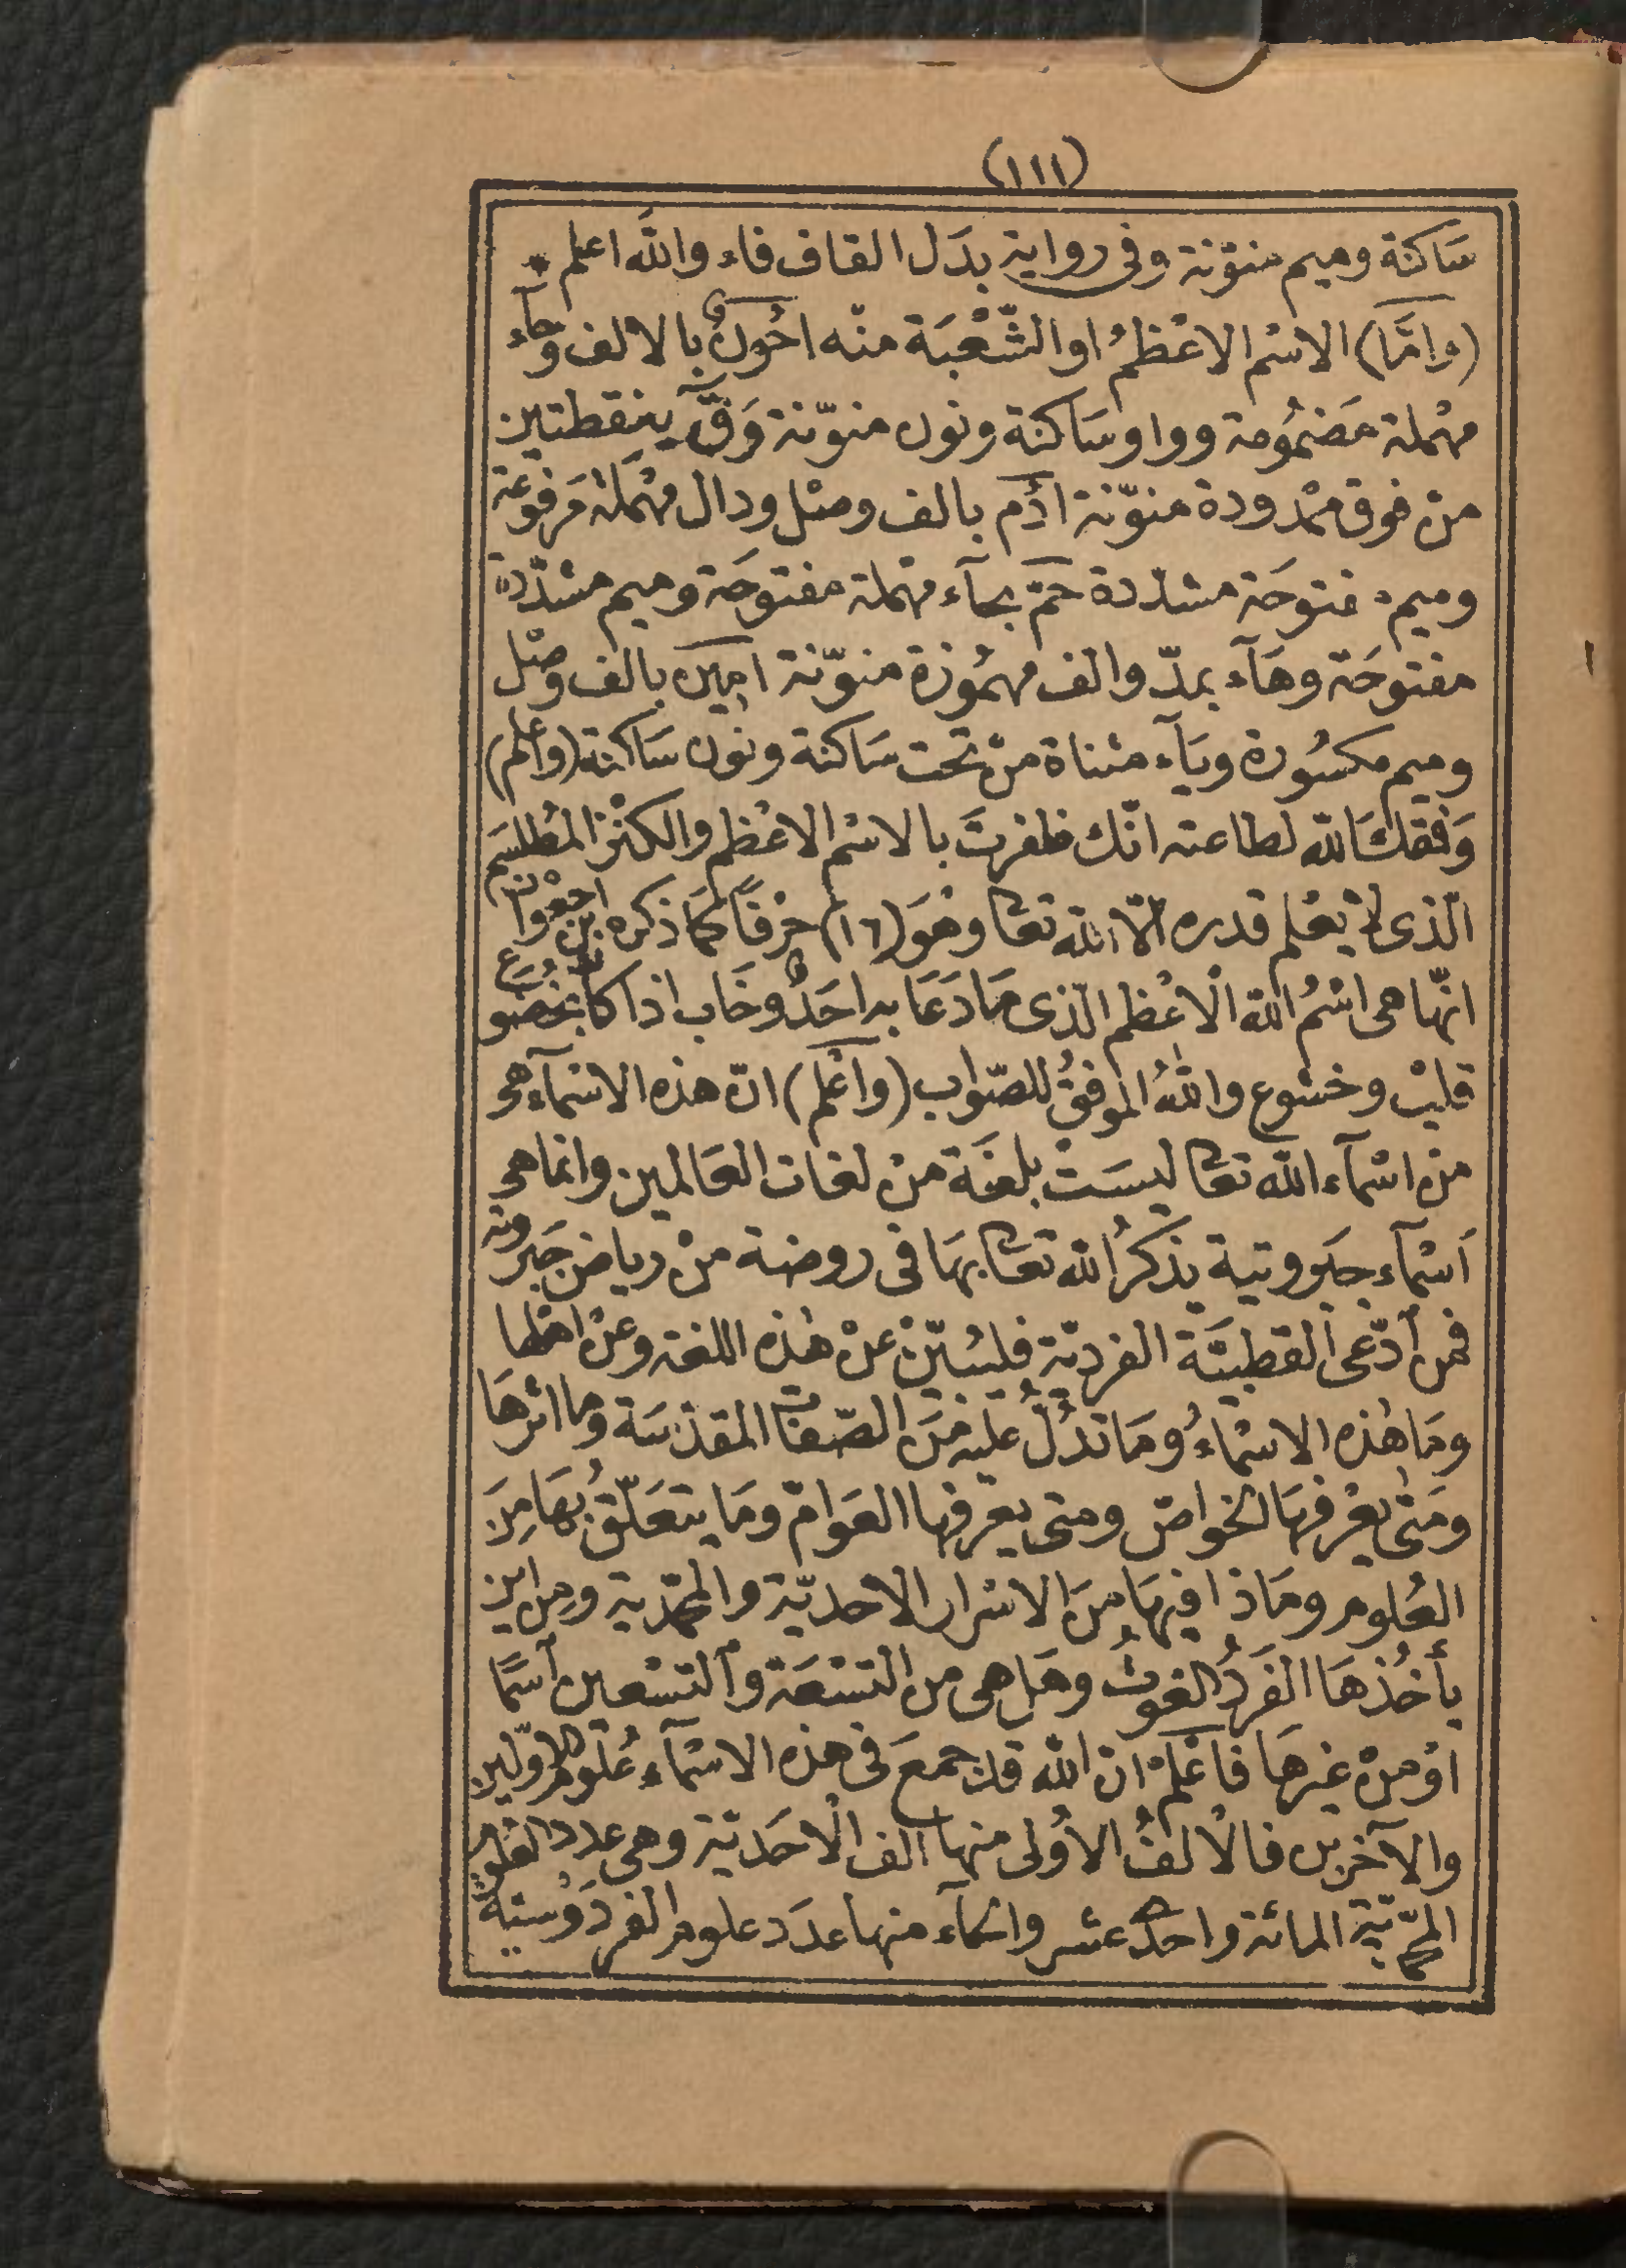 (١١١)
سَاكنة وميم منوّنة وفى رواية بدَل القاف فاء والله اعلم *
(وامَّا) الاسْم الاعْظمُ او الشّعْبَة منْه احُونٌ بالالف وحاء
مهْملة مَضمُومة وواو سَاكنة ونون منوّنة وَقٌّ بنقطتين
منْ فوق ممْدودة منوّنة ادُم بالف وصْل ودال مهْمَلة مَرفوعة
وميم مفتوحَة مشدّدة حَمَّ بحآء مهملة مفتوحَة وميم مشدّدة
مفتوحَة وهَآء بمدّ والف مهمُوزة منوّنة امِين بالف وصْل
وميم مكسُورة ويَآء مثناة منْ تحت سَاكنة ونون سَاكنة (واعلم)
وَفقكَ الله لطاعته انّك ظفرتَ بالاسْم الاعْظم والكنْز المُطلسَم
الّذى لا يعْلم قدره الّا الله تعا وهوَ (١٦) حرْفاً كمَا ذكره
انّها هى اسْمُ الله الْاعْظم الّذى مَا دَعَا به احَدٌ وخَاب اذا كان بخضُوع
قلبْ وخشوع واللهُ الموفقُ للصّواب (واعْلم) انّ هذه الاسْمآء هى
منْ اسْمآء الله تعا ليسَتْ بلغَة منْ لغات العَالمين وانما هى
اَسْمآء جبروتية يذكرُ الله تعا بهَا فى روضة منْ رياض جَبروته
فمن اَدّعى القطبيَّة الفرديّة فليُبيّنْ عنْ هٰذه اللغة وعنْ اهْلها
ومَا هٰذه الاسْماءُ ومَا تدُلّ عليْه منَ الصّفات المقدّسَة وما اثرهَا
ومَتى يعْرفهَا الخواصّ ومتى يعْرفها العَوامّ ومَا يتعَلّقُ بهَا مِنَ
العُلوم ومَاذا فيهَا مِنَ الاسْرار الاحديّة والمحمّدية ومِن اين
يأخُذهَا الفَردُ الغوثُ وهَل هى من التسْعَة وَالتسْعين اَسمًا
اوْ منْ غيرهَا فاعْلمْ ان الله قدْ جمعَ فى هٰذه الاسْمآء عُلوم الاوّلين
والآخرين فالْالفُ الْاوُلى منها الف الْاحَديّة وهى عدد العلوم
المحمّديّة المائة واحدَ عشر والحآء منها عدَد علوم الفردَوْسيّة